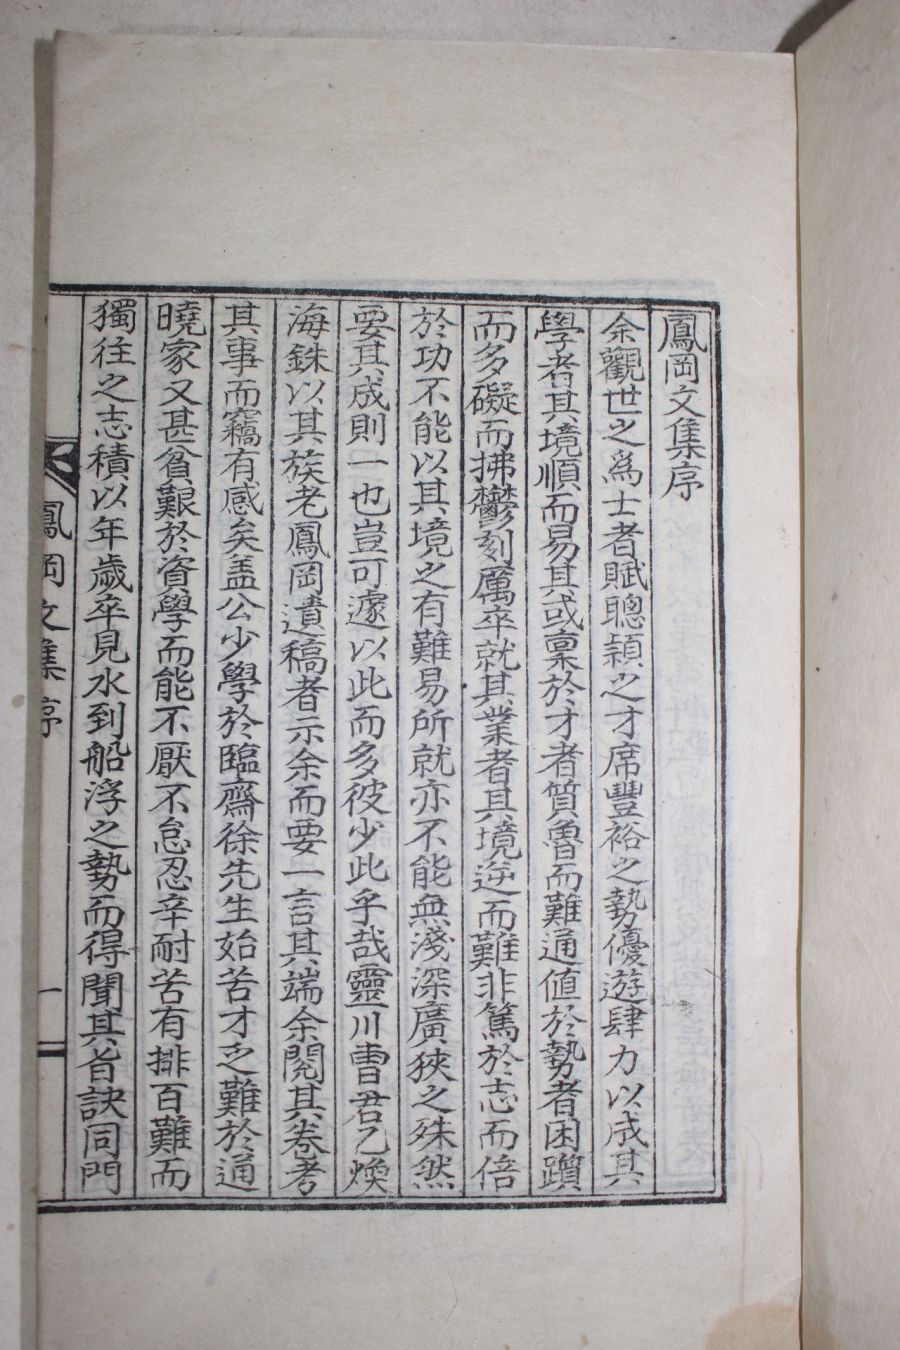 鳳岡文集序
余觀世之爲士者賦聰穎之才席豐裕之勢優遊肆力以成其
學者其境順而易其或稟於才者質魯而難通値於勢者困躓
而多礙而拂鬱刻厲卒就其業者其境逆而難非篤於志而倍
於功不能以其境之有難易所就亦不能無淺深廣狹之殊然
要其成則一也豈可遽以此而多彼少此乎哉靈川曺君乙煥
海銖以其族老鳳岡遺稿者示余而要一言其端余閱其卷考
其事而竊有感矣盖公少學於臨齋徐先生始苦才之難於通
曉家又甚貧艱於資學而能不厭不怠忍辛耐苦有排百難而
獨往之志積以年歲卒見水到船浮之勢而得聞其旨訣同門
鳳岡文集序
一